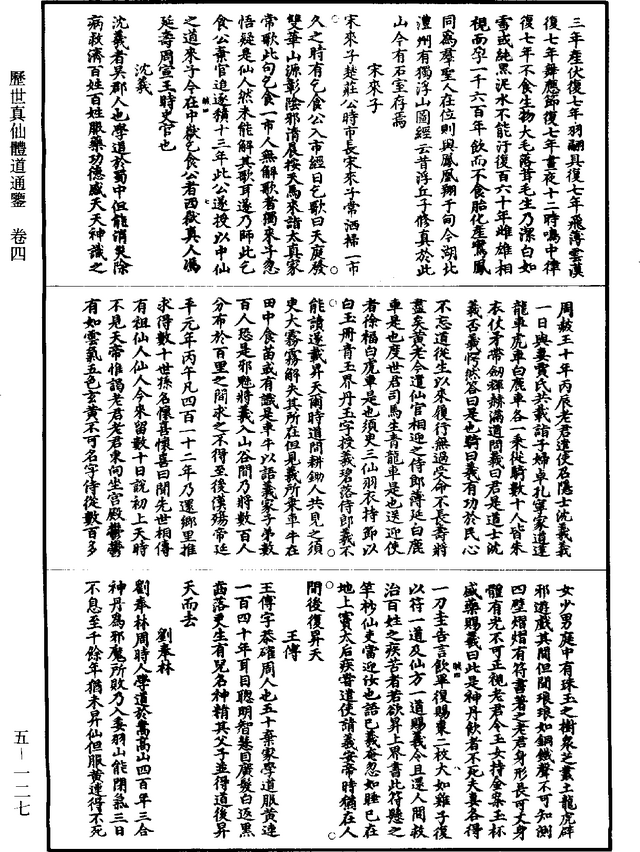 三年產伏復七年羽翮具復七年飛薄雲漢
復七年舞應節復七年晝夜十二時鳴中律
復七年不食生物大毛落茸毛生乃潔白如
雪或純黑泥水不能汙復百六十年雌雄相
視而孕一千六百年飲而不食胎化產鸞鳳
同為羣聖人在位則與鳳凰翔于甸今湖北
澧州有獨浮山圖經云昔浮丘子修真於此
山今有石室存焉
宋來子
宋來子楚莊公時市長宋來子常洒掃一市
久之時有乞食公入市經日乞歌曰天庭發
雙華山源彰陰邪清晨按天馬來詣太真家
常歌此句乞食一市人無解歌者獨來子忽
悟疑是仙人然未能解其歌耳遂乃師此乞
食公棄官追逐積十三年此公遂授以中仙
之道來子今在中嶽乞食公者西嶽真人馮
延壽周宣王時史官也
沈羲
沈羲者吳郡人也學道於蜀中但能消災除
病救濟百姓百姓服藥功德感天天神識之
周赧王十年丙辰老君遣使召隱士沈羲羲
一日與妻賈氏共載詣子婦卓扎寧家道逢
龍車虎車白鹿車各一乘從騎數十人皆朱
衣仗矛帶劒輝赫滿道問羲曰君是道士沈
羲否羲愕然答曰是也騎曰羲有功於民心
不忘道從生以來履行無過受命不長壽將
盡矣黃老今遣仙官相迎之侍郎薄延白鹿
車是也度世君司馬生青龍車是也送迎使
者徐福白虎車是也須臾三仙羽衣持節以
白玉冊青玉界丹玉字授羲碧落侍郎羲不
能讀遂載昇天爾時道間耕鋤人共見之須
臾大霧霧解失其所在但見羲所乘車牛在
田中食苗或有識是車牛以語羲家子弟數
百人恐是邪魅將羲入山谷間乃將數百人
分布於百里之間求之不得至後漢殤帝延
平元年丙午凡四百一十二年乃還鄉里推
求得數十世孫名懷喜懷喜曰聞先世相傳
有祖仙人仙人今來留數十日說初上天時
不見天帝惟謁老君老君東向坐宮殿鬱鬱
有如雲氣五色玄黃不可名字侍從數百多
女少男庭中有珠玉之樹衆芝叢生龍虎辟
邪遊戲其間但聞琅琅如銅鐵聲不可知測
四壁熠熠有符書著之老君身形長可丈身
體有光不可正視老君令玉女持金案玉杯
盛藥賜羲曰此是神丹飲者不死夫妻各得
一刀圭告言飲畢復賜棗二枚大如雞子復
以符一道及仙方一道賜羲令且還人間救
治百姓之疾苦者若欲昇上界書此符懸之
竿杪仙吏當迎汝也語已羲奄忽如睡已在
地上竇太后疾嘗遣使請羲安帝時猶在人
間後復昇天
王傅
王傅字恭確周人也五十棄家學道服黃連
一百四十年耳目聰明智慧目廣髮白返黑
齒落更生有兒名神精其父子並得道後昇
天而去
劉奉林
劉奉林周時人學道於嵩高山四百年三合
神丹為邪魔所敗乃入委羽山能閉氣三日
不息至千餘年猶未昇仙但服黃連得不死
歷世真仙體道通鑒　卷四
五－一二七